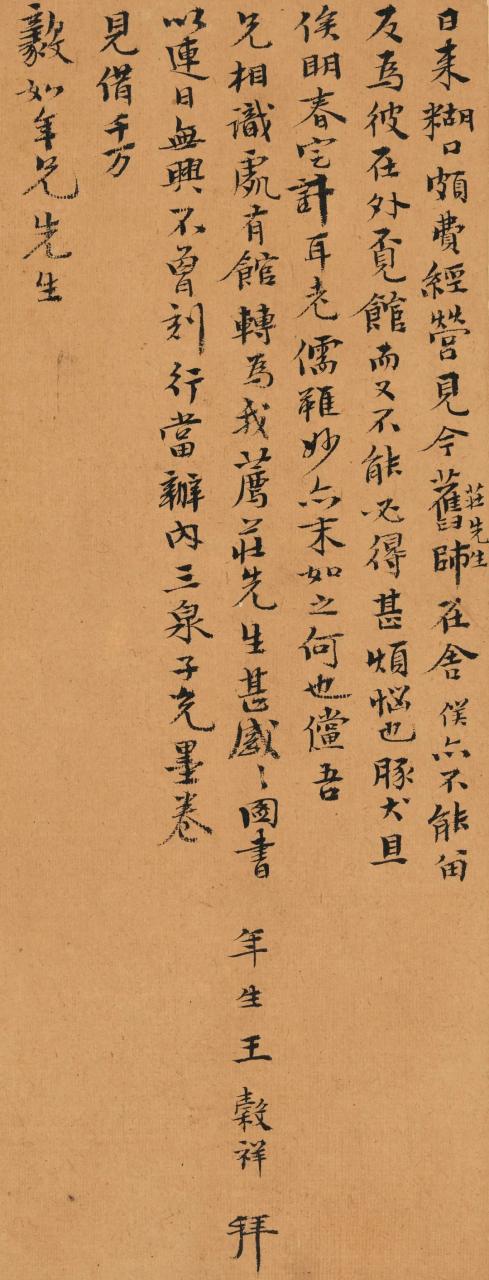 日来糊口頗費經營見今舊師在舍僕亦不能留
莊先生
反為彼在外覓館而又不能必得甚煩惱也豚犬且
俟明春定計耳老儒雖妙亦末如之何也儻吾
兄相識處有館轉為我薦莊先生甚感〻圖書
以連日無興不曾刻行當辦內三泉子先墨卷
見借千万
毅如年兄先生
年生王穀祥拜